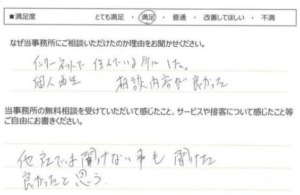 満足度 とても満足 ・ 満足 ・ 普通 ・ 改善してほしい ・ 不満
なぜ当事務所にご相談いただけたのか理由をお聞かせください。
インターネットで 住んでいる所にした。
個人再生 相談内容が良かった
当事務所の無料相談を受けていただいて感じたこと、サービスや接客について感じたこと等
ご自由にお書きください。
他社では聞けない事も聞けた
良かったと思う.